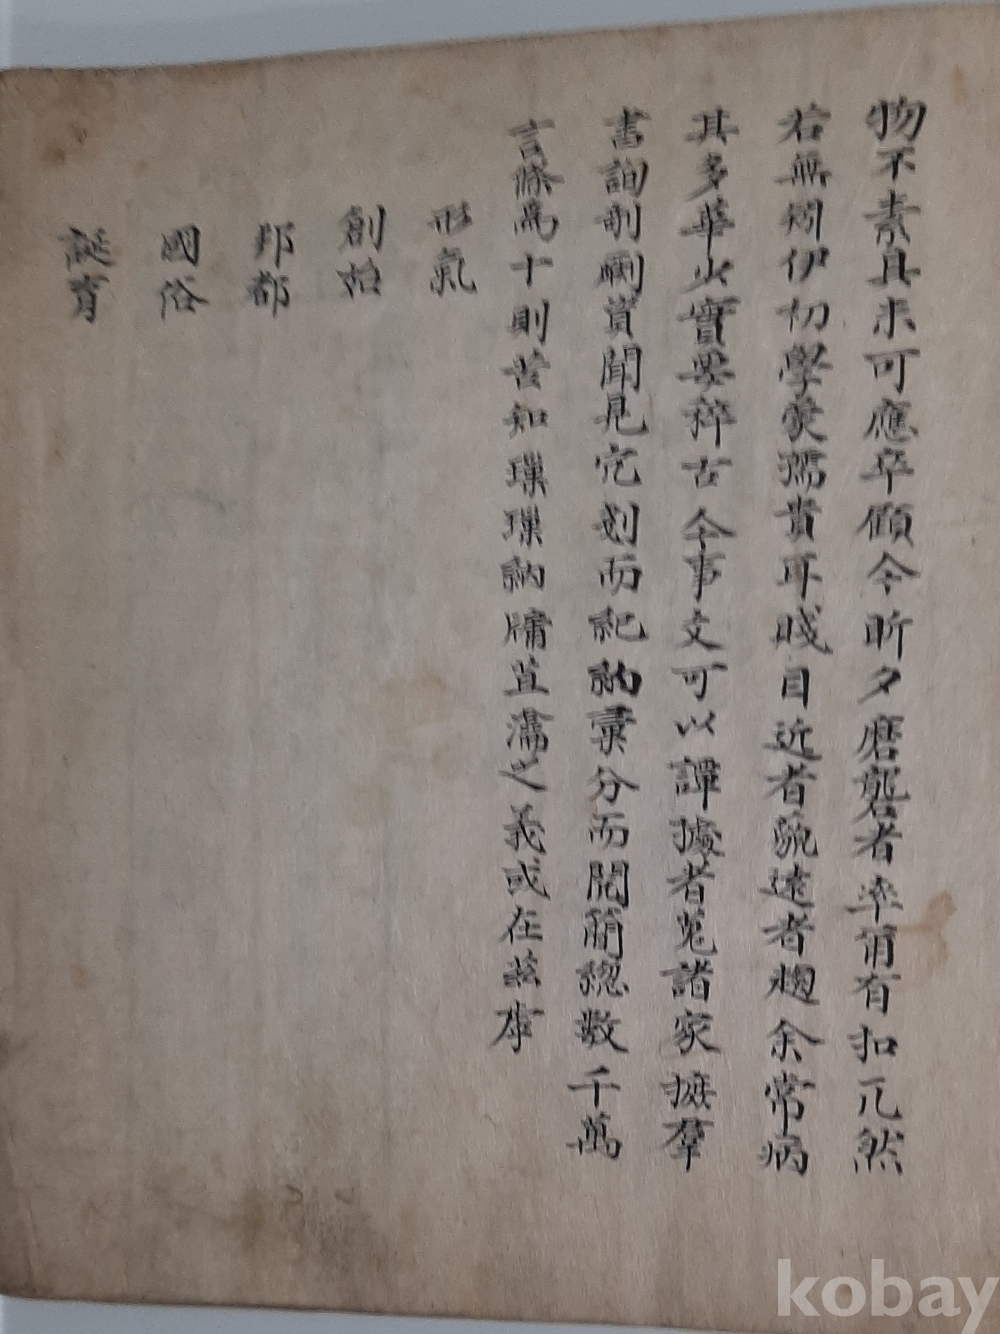 物不素具未可應卒顧今昕夕磨礱者率爾有扣兀然
若無矧伊初學蒙孺貴耳賤目近者藐遠者趨余常病
其多華少實要稡古今事文可以譚據者蒐諸家摭羣
書詢剞劂質聞見它剡而紀納彙分而閱簡總數千萬
言條爲十則昔知璞璞納牖直濡之義或在玆乎
形氣
創始
邦都
國俗
誕育
kobay